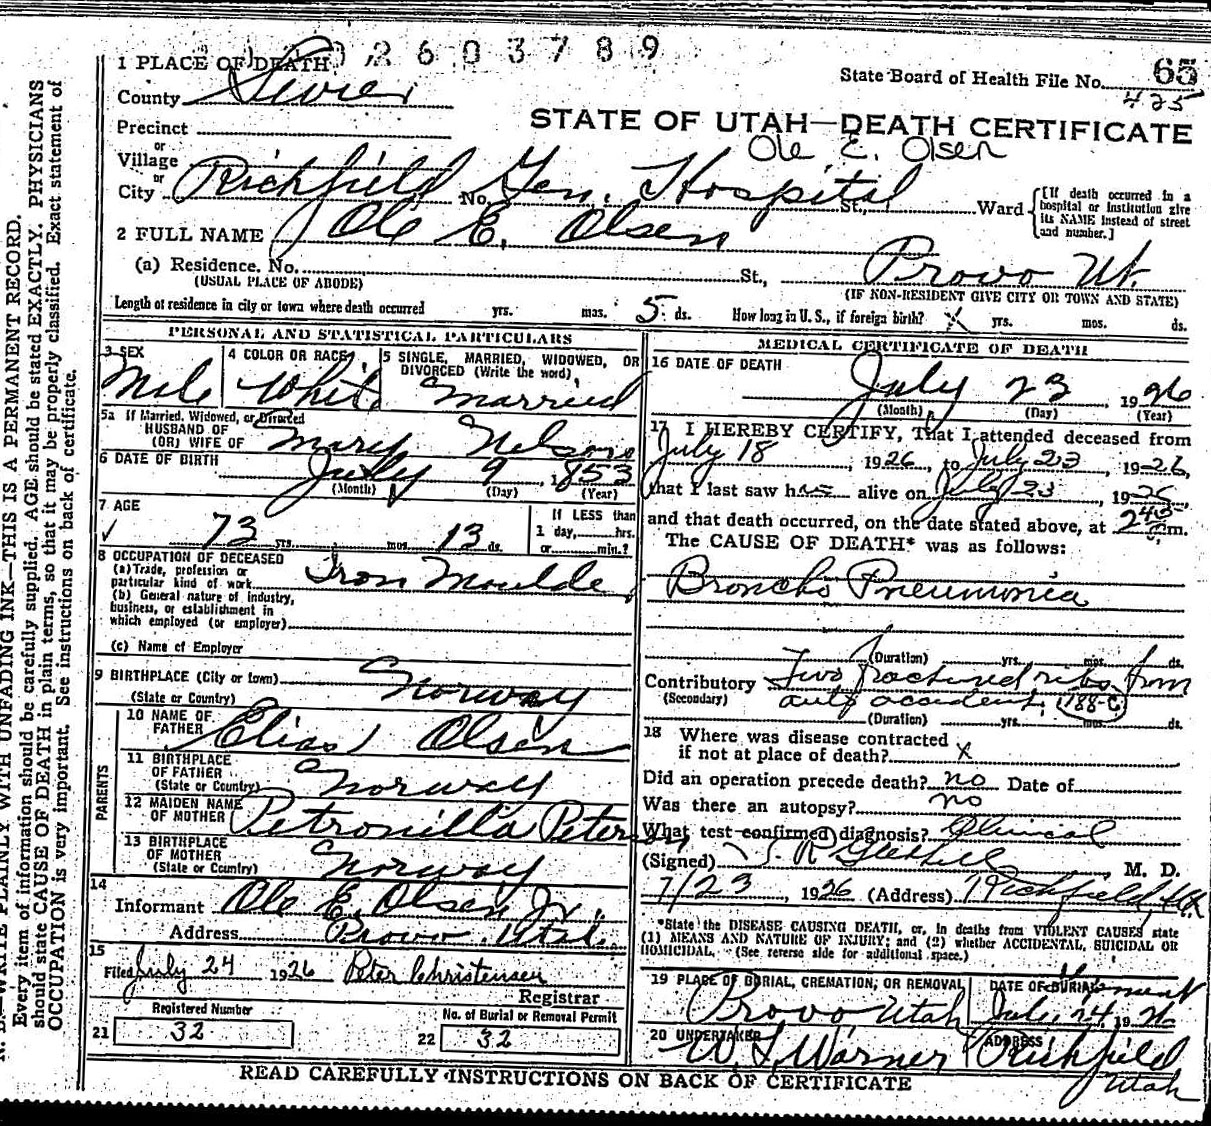 2603789
1 PLACE OF DEATH
State Board of Health File No. 65
425
County Sevier
STATE OF UTAH—DEATH CERTIFICATE
Precinct
Ole E. Olsen
or
Village
or
City Richfield No. Gen. Hospital St., Ward
[If death occurred in a hospital or institution give its NAME instead of street and number.]
2 FULL NAME Ole E. Olsen
(a) Residence. No. St., Provo Ut.
(USUAL PLACE OF ABODE) (IF NON-RESIDENT GIVE CITY OR TOWN AND STATE)
Length of residence in city or town where death occurred yrs. mos. 5 ds. How long in U. S., if foreign birth? X yrs. mos. ds.
PERSONAL AND STATISTICAL PARTICULARS
3 SEX
Male
4 COLOR OR RACE
White
5 SINGLE, MARRIED, WIDOWED, OR DIVORCED (Write the word)
Married
5a If Married, Widowed, or Divorced
HUSBAND OF
(OR) WIFE OF Mary Nelson
6 DATE OF BIRTH July 9, 1853
(Month) (Day) (Year)
7 AGE
73 yrs. mos. 13 ds.
If LESS than
1 day, hrs.
or min.?
8 OCCUPATION OF DECEASED
(a) Trade, profession or
particular kind of work Iron Moulder
(b) General nature of industry,
business, or establishment in
which employed (or employer)
(c) Name of Employer
9 BIRTHPLACE (City or town)
(State or Country) Norway
PARENTS
10 NAME OF
FATHER Elias Olsen
11 BIRTHPLACE
OF FATHER
(State or Country) Norway
12 MAIDEN NAME
OF MOTHER Petronilla Peterson
13 BIRTHPLACE
OF MOTHER
(State or Country) Norway
14
Informant Ole E. Olsen Jr.
Address Provo, Utah.
15
Filed July 24 1926 Peter Christensen
Registrar
Registered Number
21 32
No. of Burial or Removal Permit
22 32
MEDICAL CERTIFICATE OF DEATH
16 DATE OF DEATH
July 23 1926
(Month) (Day) (Year)
17 I HEREBY CERTIFY, That I attended deceased from
July 18, 1926, to July 23, 1926,
that I last saw h alive on July 23, 1926
and that death occurred, on the date stated above, at 2 45 m.
The CAUSE OF DEATH* was as follows:
Broncho Pneumonia
(Duration) yrs. mos. ds.
Contributory Two fractured ribs from
(Secondary) auto accident. 188-C
(Duration) yrs. mos. ds.
18 Where was disease contracted
if not at place of death? X
Did an operation precede death? no Date of
Was there an autopsy? no
What test confirmed diagnosis? Clinical
(Signed) M. D.
7/23, 1926 (Address) Richfield, Ut
*State the DISEASE CAUSING DEATH, or, in deaths from VIOLENT CAUSES state
(1) MEANS AND NATURE OF INJURY; and (2) whether ACCIDENTAL, SUICIDAL OR
HOMICIDAL. (See reverse side for additional space.)
19 PLACE OF BURIAL, CREMATION, OR REMOVAL
Provo Utah
DATE OF BURIAL
July 24, 1926
20 UNDERTAKER
W. L. Warner
ADDRESS
Richfield
Utah
READ CAREFULLY INSTRUCTIONS ON BACK OF CERTIFICATE
WRITE PLAINLY WITH UNFADING INK—THIS IS A PERMANENT RECORD.
Every item of information should be carefully supplied. AGE should be stated EXACTLY. PHYSICIANS
should state CAUSE OF DEATH in plain terms, so that it may be properly classified. Exact statement of
OCCUPATION is very important. See instructions on back of certificate.